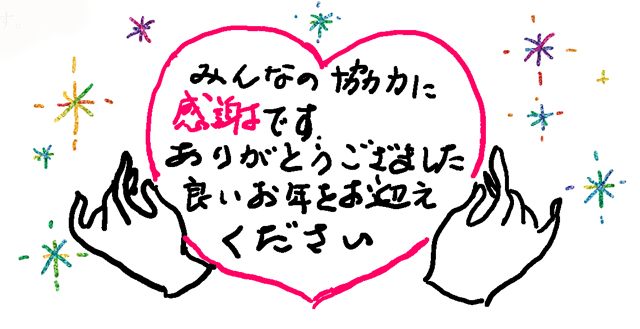 みんなの協力に
感謝です.
ありがとうございました
良いお年をお迎え
ください